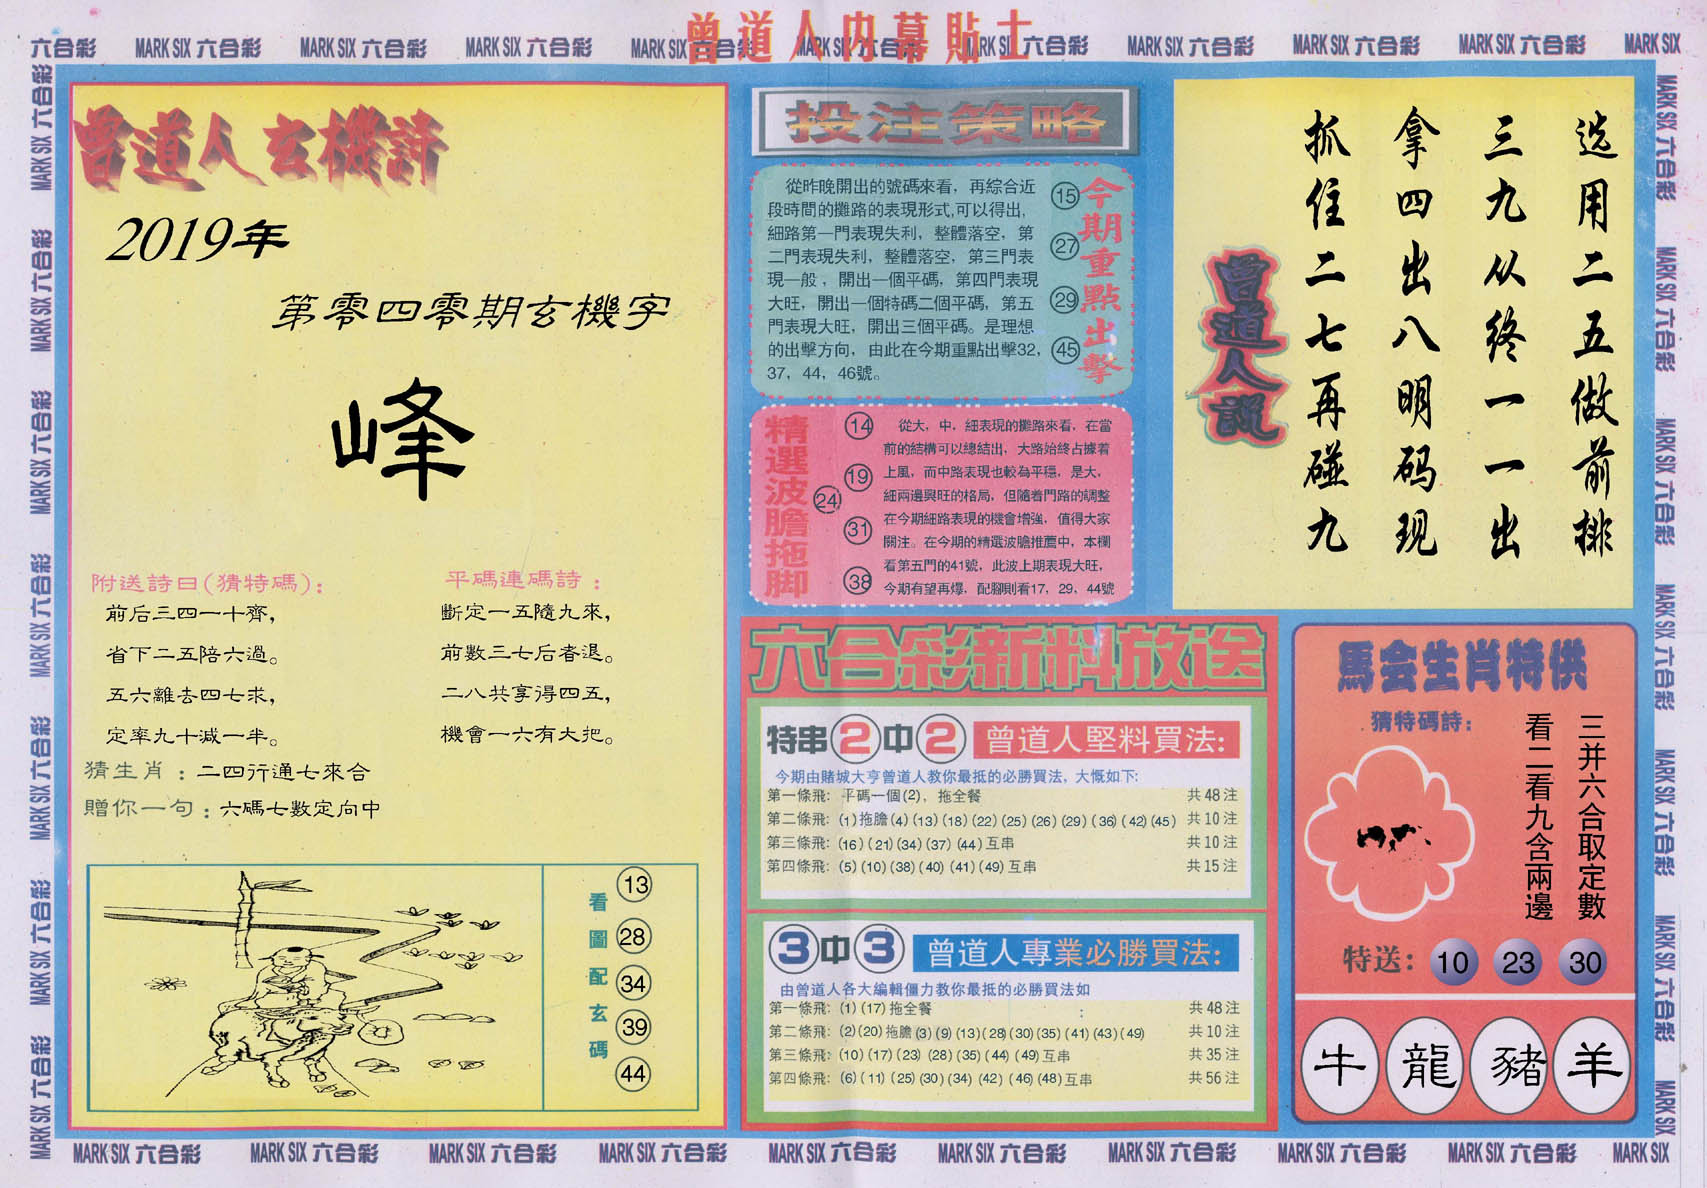 六合彩 MARK SIX 六合彩 MARK SIX 六合彩 MARK SIX 六合彩 MARK SIX 六合彩 MARK SIX 六合彩 MARK SIX 六合彩 MARK SIX 六合彩 MARK SIX 六合彩 MARK SIX 六合彩 MARK SIX
曾道人内幕貼士
曾道人玄機詩
2019年
第零四零期玄機字
峰
附送詩曰(猜特碼):
前后三四一十齊,
省下二五陪六過。
五六離去四七求,
定率九十減一半。
平碼連碼詩:
斷定一五隨九來,
前數三七后者退。
二八共享得四五,
機會一六有大把。
猜生肖:二四行通七來合
贈你一句:六碼七數定向中
看圖配玄碼
13
28
34
39
44
投注策略
從昨晚開出的號碼來看，再綜合近
段時間的攤路的表現形式,可以得出,
細路第一門表現失利，整體落空，第
二門表現失利，整體落空，第三門表
現一般，開出一個平碼，第四門表現
大旺，開出一個特碼二個平碼，第五
門表現大旺，開出三個平碼。是理想
的出擊方向，由此在今期重點出擊32，
37，44，46號。
15
27
29
45
今期重點出擊
精選波膽拖脚
14
19
24
31
38
從大，中，細表現的攤路來看，在當
前的結構可以總結出，大路始終占據着
上風，而中路表現也較為平穩，是大，
細兩邊興旺的格局，但隨着門路的調整
在今期細路表現的機會增強，值得大家
關注。在今期的精選波膽推薦中，本欄
看第五門的41號，此波上期表現大旺，
今期有望再爆，配腳則看17，29，44號
曾道人說
选用二五做前排
三九从终一一出
拿四出八明码现
抓住二七再碰九
六合彩新料放送
特串2中2 曾道人堅料買法:
今期由賭城大亨曾道人教你最抵的必勝買法，大慨如下:
第一條飛: 平碼一個(2)，拖全餐 共48注
第二條飛: (1)拖膽(4)(13)(18)(22)(25)(26)(29)(36)(42)(45) 共10注
第三條飛: (16)(21)(34)(37)(44)互串 共10注
第四條飛: (5)(10)(38)(40)(41)(49)互串 共15注
3中3 曾道人專業必勝買法:
由曾道人各大編輯僵力教你最抵的必勝買法如
第一條飛: (1)(17)拖全餐 : 共48注
第二條飛: (2)(20)拖膽(3)(9)(13)(28)(30)(35)(41)(43)(49) 共10注
第三條飛: (10)(17)(23)(28)(35)(44)(49)互串 共35注
第四條飛: (6)(11)(25)(30)(34)(42)(46)(48)互串 共56注
馬会生肖特供
猜特碼詩:
三并六合取定數
看二看九含兩邊
特送: 10 23 30
牛 龍 豬 羊
MARK SIX 六合彩 MARK SIX 六合彩 MARK SIX 六合彩 MARK SIX 六合彩 MARK SIX 六合彩 MARK SIX 六合彩 MARK SIX 六合彩 MARK SIX 六合彩 MARK SIX 六合彩 MARK SIX
MARK SIX 六合彩 MARK SIX 六合彩 MARK SIX 六合彩 MARK SIX 六合彩 MARK SIX 六合彩 MARK SIX 六合彩 MARK SIX 六合彩
MARK SIX 六合彩 MARK SIX 六合彩 MARK SIX 六合彩 MARK SIX 六合彩 MARK SIX 六合彩 MARK SIX 六合彩 MARK SIX